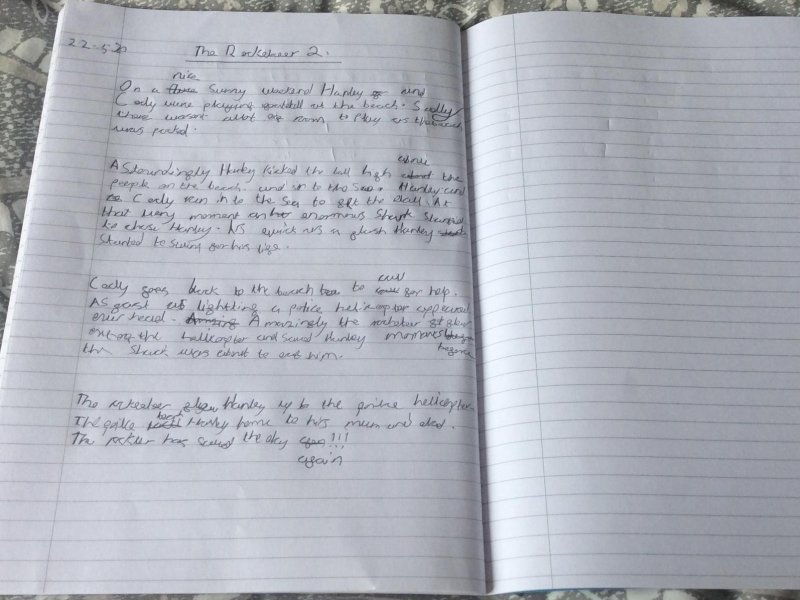 22-5-20
The Rocketeer 2.
nice
On a sunny weekend Harley and
Cody were playing football at the beach. Sadly
there wasent allot of room to play as the beach
was packed.
Astoundingly Harley kicked the ball high above the
people on the beach and in to the sea. Harley and
Cody ran in to the sea to get the ball. At
that very moment an enormous Shark started
to chase Harley. As quick as a flash Harley
started to swim for his life.
Cody goes back to the beach to call for help.
As fast as lightling a police helicopter appeared
over head. Amazingly the rocketeer flew
out of the helicopter and saved Harley moments
before
the Shark was about to eat him.
The rocketeer flew Harley up to the police helicopter
The police took Harley home to his mum and dad.
The has saved the day !!!
again